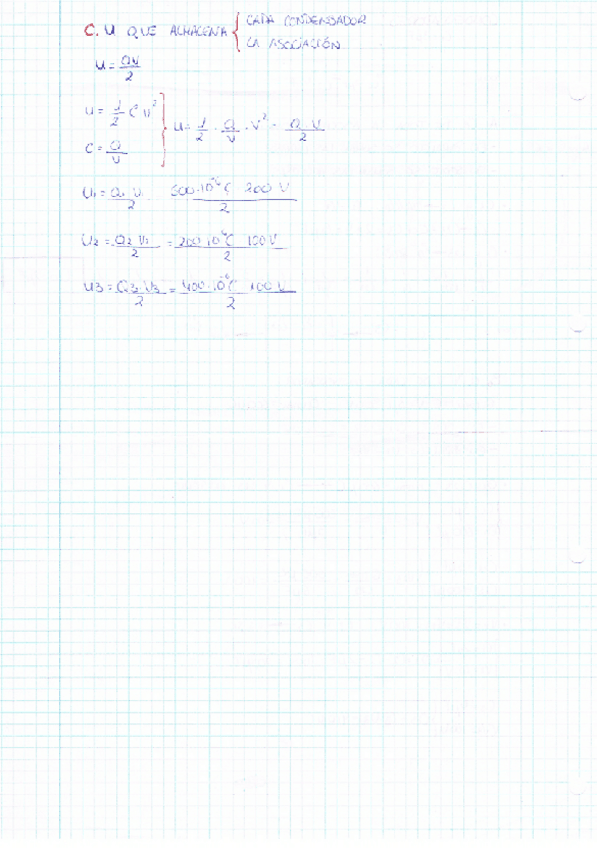 C. U QUE ALMACENA { CADA CONDENSADOR
LA ASOCIACIÓN
U = QV/2
U = 1/2 C V²
C = Q/V } U = 1/2 · Q/V · V² = Q V/2
U1 = Q1 V1/2 10⁻⁶ C 200 V/2
U2 = Q2 V2/2 = 200 · 10⁻⁶ C 100 V/2
U3 = Q3 · V3/2 = 400 · 10⁻⁶ C 100 V/2